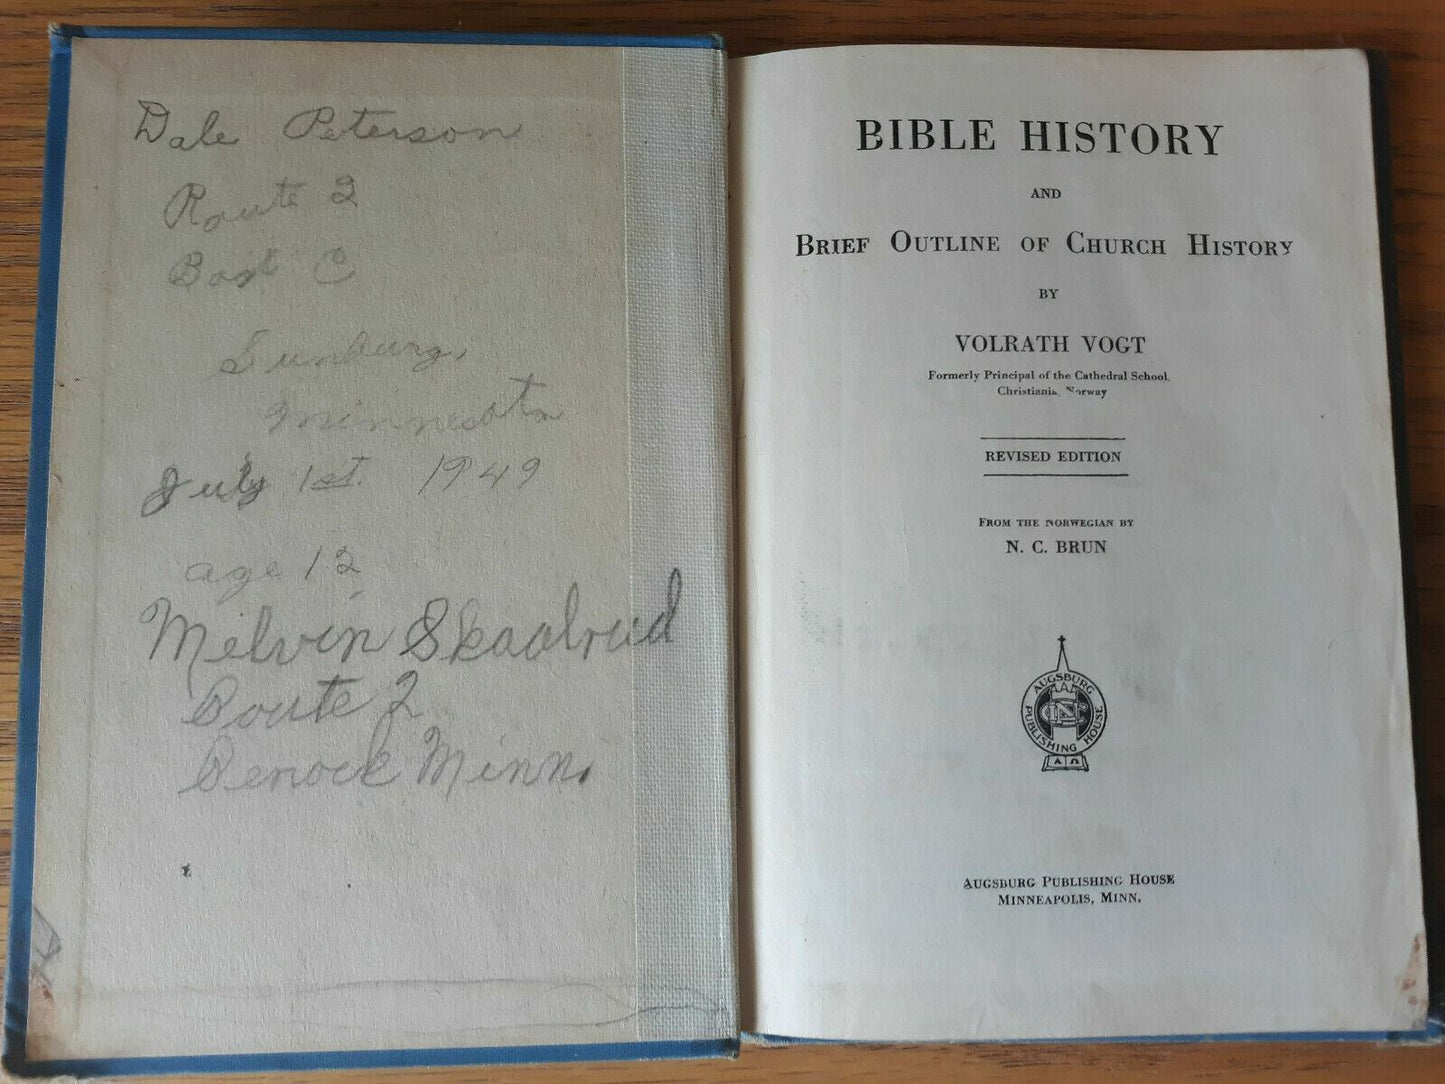 Dale Peterson
Route 2
Box C
Sunburg,
Minnesota
July 1st. 1949
age 12
Melvin Skaalrud
Route 2
Benock Minn.
BIBLE HISTORY
AND
BRIEF OUTLINE OF CHURCH HISTORY
BY
VOLRATH VOGT
Formerly Principal of the Cathedral School,
Christiania, Norway
REVISED EDITION
FROM THE NORWEGIAN BY
N. C. BRUN
AUGSBURG
PUBLISHING HOUSE
Α Ω
AUGSBURG PUBLISHING HOUSE
MINNEAPOLIS, MINN.